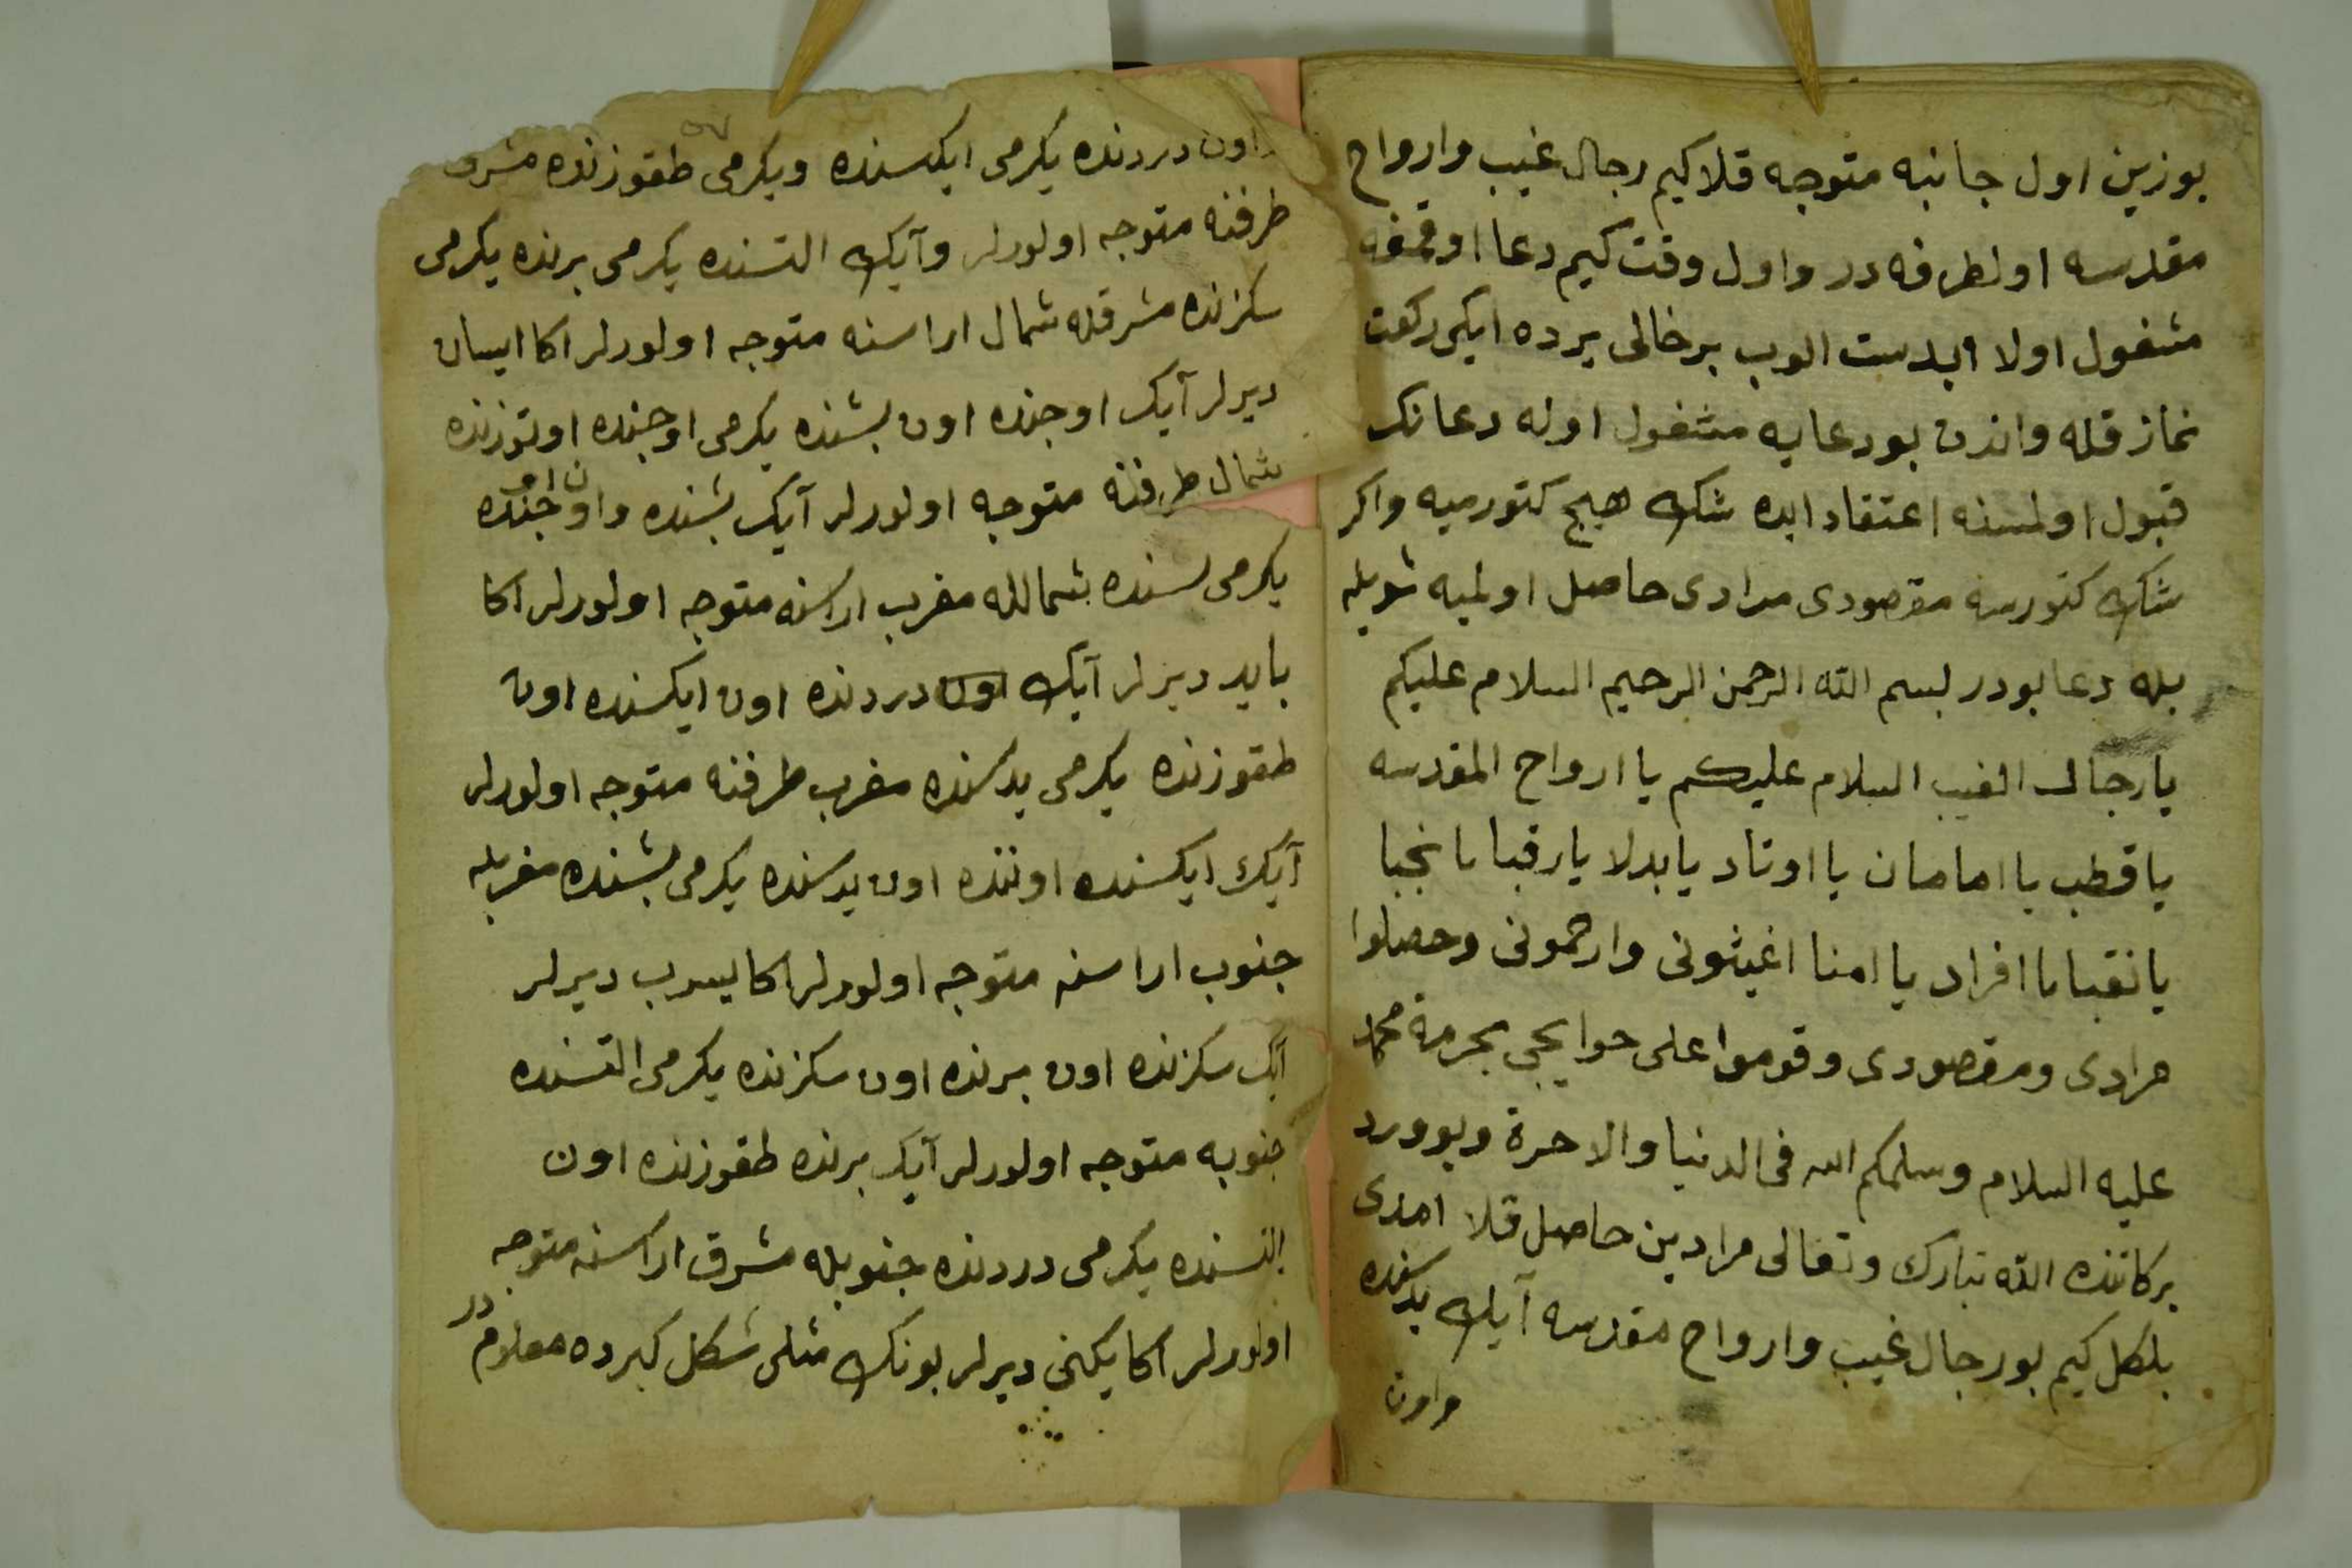 يوزين اول جانبه متوجه قلا كيم رجال غيب وارواح
مقدسه اولطرفه در واول وقت كيم دعا اوقمغه
مشغول اولا ابدست الوب بر خالى يرده ايكى ركعت
نماز قله واندن بو دعايه مشغول اوله دعانك
قبول اولمسنه اعتقاد ايده شك هيچ كتورميه واكر
شك كتورسه مقصودى مرادى حاصل اولميه شويله
بله دعا بودر بسم الله الرحمن الرحيم السلام عليكم
يا رجال الغيب السلام عليكم يا ارواح المقدسه
يا قطب يا امامان يا اوتاد يا بدلا يا رقبا يا نجبا
يا نقبا يا افراد يا امنا اغيثونى وارحمونى وحصلوا
مرادى ومقصودى وقوموا على حوايجى بحرمة محمد
عليه السلام وسلمكم الله فى الدنيا والاخرة وبو ورد
بركاتنده الله تبارك وتعالى مرادين حاصل قلا امدى
بلكل كيم بو رجال غيب وارواح مقدسه آيك يدسنده
واون
واون دردنده يكرمى ايكسنده ويكرمى طقوزنده مشرق
طرفنه متوجه اولورلر وآيك التسنده يكرمى برنده يكرمى
سكزنده مشرقله شمال اراسنه متوجه اولورلر اكا ايسان
ديرلر آيك اوجنده اون بشنده يكرمى اوجنده اوتوزنده
شمال طرفنه متوجه اولورلر آيك بشنده واون اوجنده
يكرمى سنده شمالله مغرب اراسنه متوجه اولورلر اكا
بايد ديرلر آيك اون دردنده اون ايكسنده اون
طقوزنده يكرمى يدسنده مغرب طرفنه متوجه اولورلر
آيك ايكسنده اوننده اون يدسنده يكرمى بشنده مغربله
جنوب اراسنه متوجه اولورلر اكا يسرب ديرلر
آيك سكزنده اون برنده اون سكزنده يكرمى التسنده
جنوبه متوجه اولورلر آيك برنده طقوزنده اون
التسنده يكرمى دردنده جنوبله مشرق اراسنه متوجه
اولورلر اكا يكنى ديرلر بونك مثلى شكل كبرده معلوم در